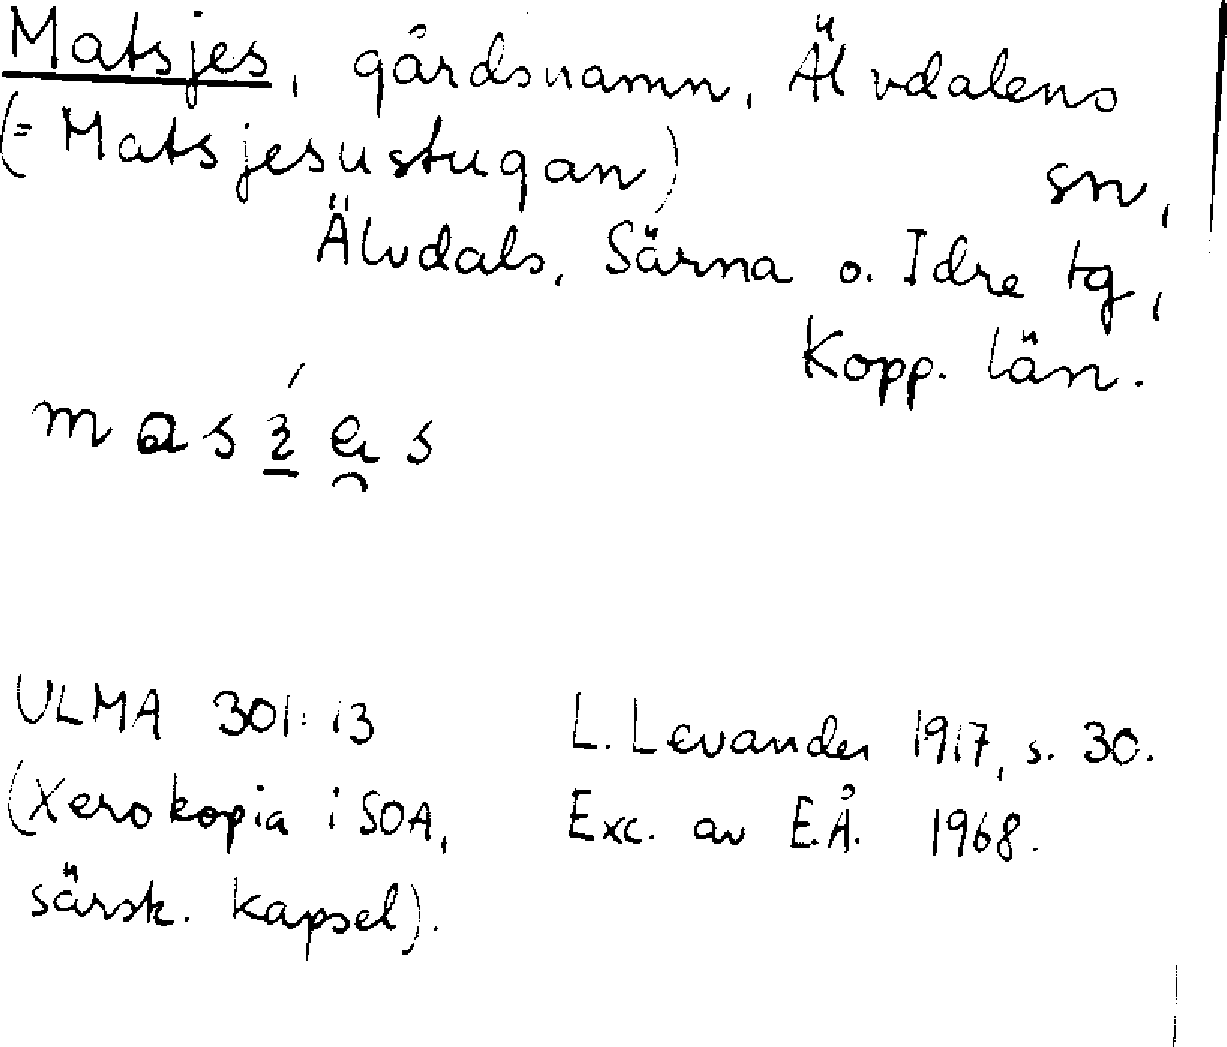 Matsjes, gårdsnamn, Älvdalens
(= Matsjesustugan) sn,
Älvdals, Särna o. Idre tg,
Kopp. län.
ULMA 301:13 L. Levander 1917, s. 30.
(Xerokopia i SOA, Exc. av E.Å. 1968.
särsk. kapsel).